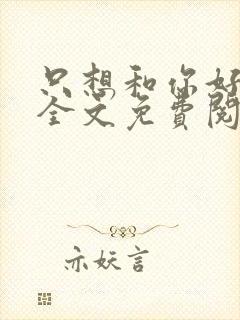 只想和你好
全文免費閱
亦妖言